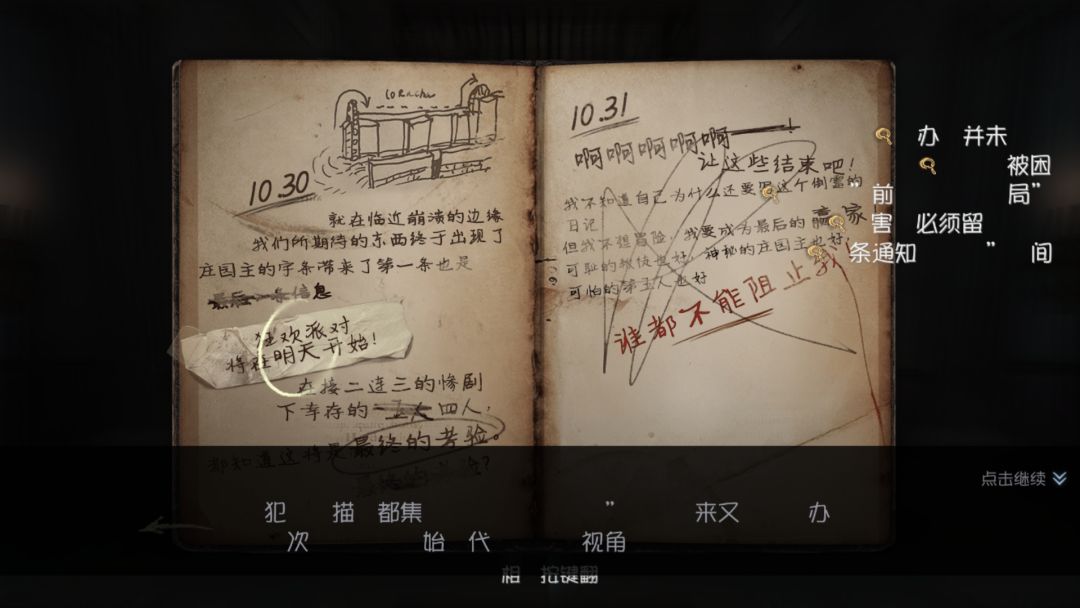 10.30
就在临近崩溃的边缘
我们所期待的东西终于出现了
庄园主的字条带来了第一条也是
最后一条信息
狂欢派对
将在明天开始!
在接二连三的惨剧
下幸存的 四人,
都知道这将是最终的考验。
10.31
啊啊啊啊啊——!
让这些结束吧!
我不知道自己为什么还要 这个倒霉的
日记
但我不想冒险,我要成为最后的赢家!
可耻的 也好,神秘的庄园主也好,
可怕的第五人也好
谁都不能阻止我!
办 并未
被困
“前 局”
害 必须留
条通知 ” 间
点击继续
犯 描 都集 ” 来又 办
次 始 代 视角
相 按键翻